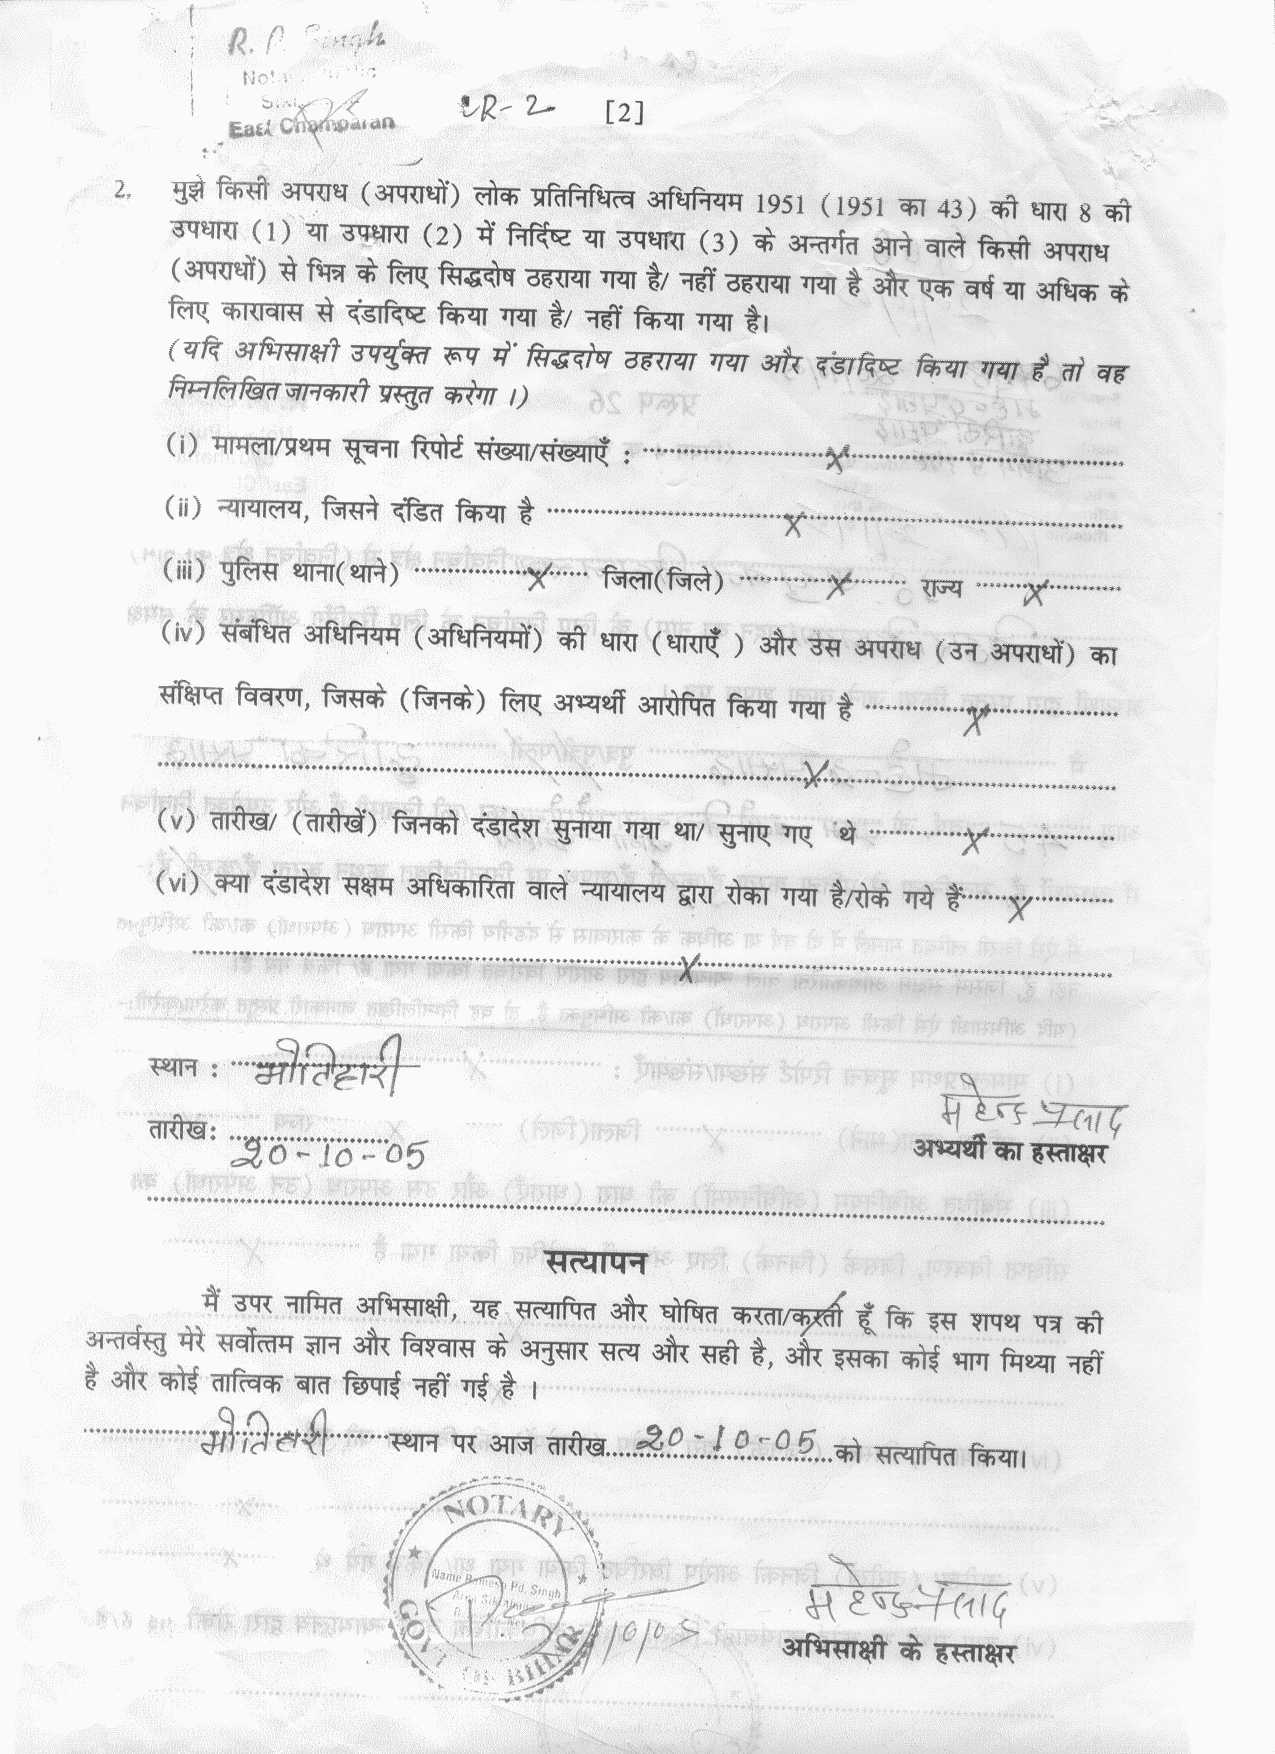 R. P. Singh
East Champaran
CR-2 [2]
2. मुझे किसी अपराध (अपराधों) लोक प्रतिनिधित्व अधिनियम 1951 (1951 का 43) की धारा 8 की
उपधारा (1) या उपधारा (2) में निर्दिष्ट या उपधारा (3) के अन्तर्गत आने वाले किसी अपराध
(अपराधों) से भिन्न के लिए सिद्धदोष ठहराया गया है/ नहीं ठहराया गया है और एक वर्ष या अधिक के
लिए कारावास से दंडादिष्ट किया गया है/ नहीं किया गया है।
(यदि अभिसाक्षी उपर्युक्त रूप में सिद्धदोष ठहराया गया और दंडादिष्ट किया गया है तो वह
निम्नलिखित जानकारी प्रस्तुत करेगा ।)
(i) मामला/प्रथम सूचना रिपोर्ट संख्या/संख्याएँ : X
(ii) न्यायालय, जिसने दंडित किया है X
(iii) पुलिस थाना(थाने) X जिला(जिले) X राज्य X
(iv) संबंधित अधिनियम (अधिनियमों) की धारा (धाराएँ ) और उस अपराध (उन अपराधों) का
संक्षिप्त विवरण, जिसके (जिनके) लिए अभ्यर्थी आरोपित किया गया है X
X
(v) तारीख/ (तारीखें) जिनको दंडादेश सुनाया गया था/ सुनाए गए थे X
(vi) क्या दंडादेश सक्षम अधिकारिता वाले न्यायालय द्वारा रोका गया है/रोके गये हैं X
X
स्थान : मोतिहारी
महेन्द्र प्रसाद
तारीख: 20-10-05
अभ्यर्थी का हस्ताक्षर
सत्यापन
मैं उपर नामित अभिसाक्षी, यह सत्यापित और घोषित करता/करती हूँ कि इस शपथ पत्र की
अन्तर्वस्तु मेरे सर्वोत्तम ज्ञान और विश्वास के अनुसार सत्य और सही है, और इसका कोई भाग मिथ्या नहीं
है और कोई तात्विक बात छिपाई नहीं गई है ।
मोतिहारी स्थान पर आज तारीख 20-10-05 को सत्यापित किया।
NOTARY
Name Ramesh Pd. Singh
GOVT OF BIHAR
महेन्द्र प्रसाद
अभिसाक्षी के हस्ताक्षर